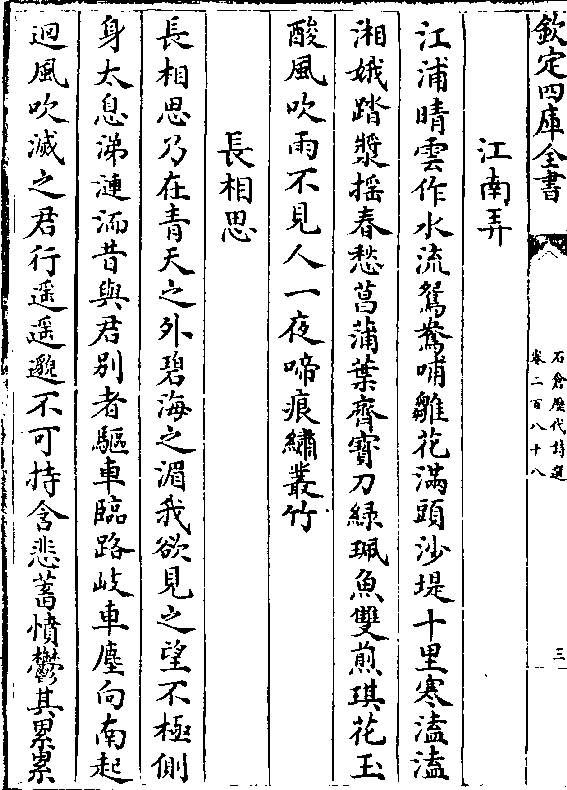 欽定四庫全書
石倉歷代詩選
卷二百八十八
三
江南弄
江浦晴雲作水流鴛鴦哺雛花滿頭沙堤十里寒溘溘
湘娥踏槳摇春愁菖蒲葉齊寶刀緑珮魚雙煎琪花玉
酸風吹雨不見人一夜啼痕繡叢竹
長相思
長相思乃在青天之外碧海之湄我欲見之望不極側
身太息涕漣洏昔與君别者驅車臨路岐車塵向南起
迴風吹滅之君行遥遥邈不可持含悲蓄憤鬱其累累